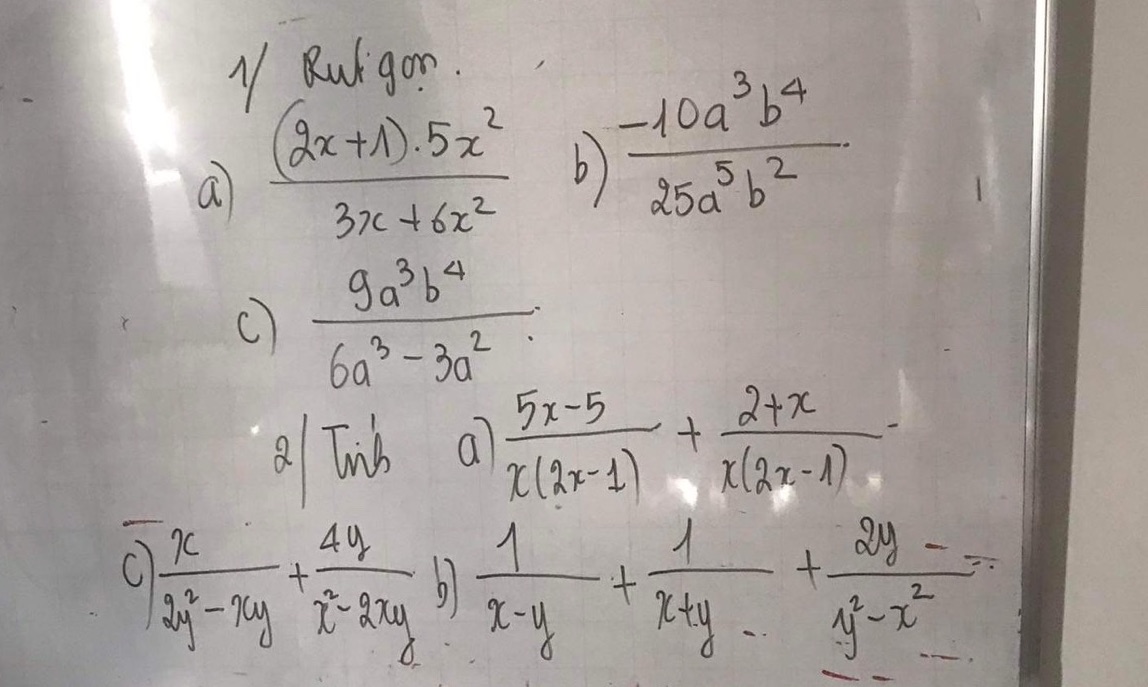 1/ Rút gọn.
a) \frac{(2x+1).5x^2}{3x+6x^2} b) \frac{-10a^3b^4}{25a^5b^2}
c) \frac{9a^3b^4}{6a^3-3a^2}
2/ Tính a) \frac{5x-5}{x(2x-1)} + \frac{2+x}{x(2x-1)}
c) \frac{x}{2y^2-xy} + \frac{4y}{x^2-2xy} b) \frac{1}{x-y} + \frac{1}{x+y} + \frac{2y}{y^2-x^2}